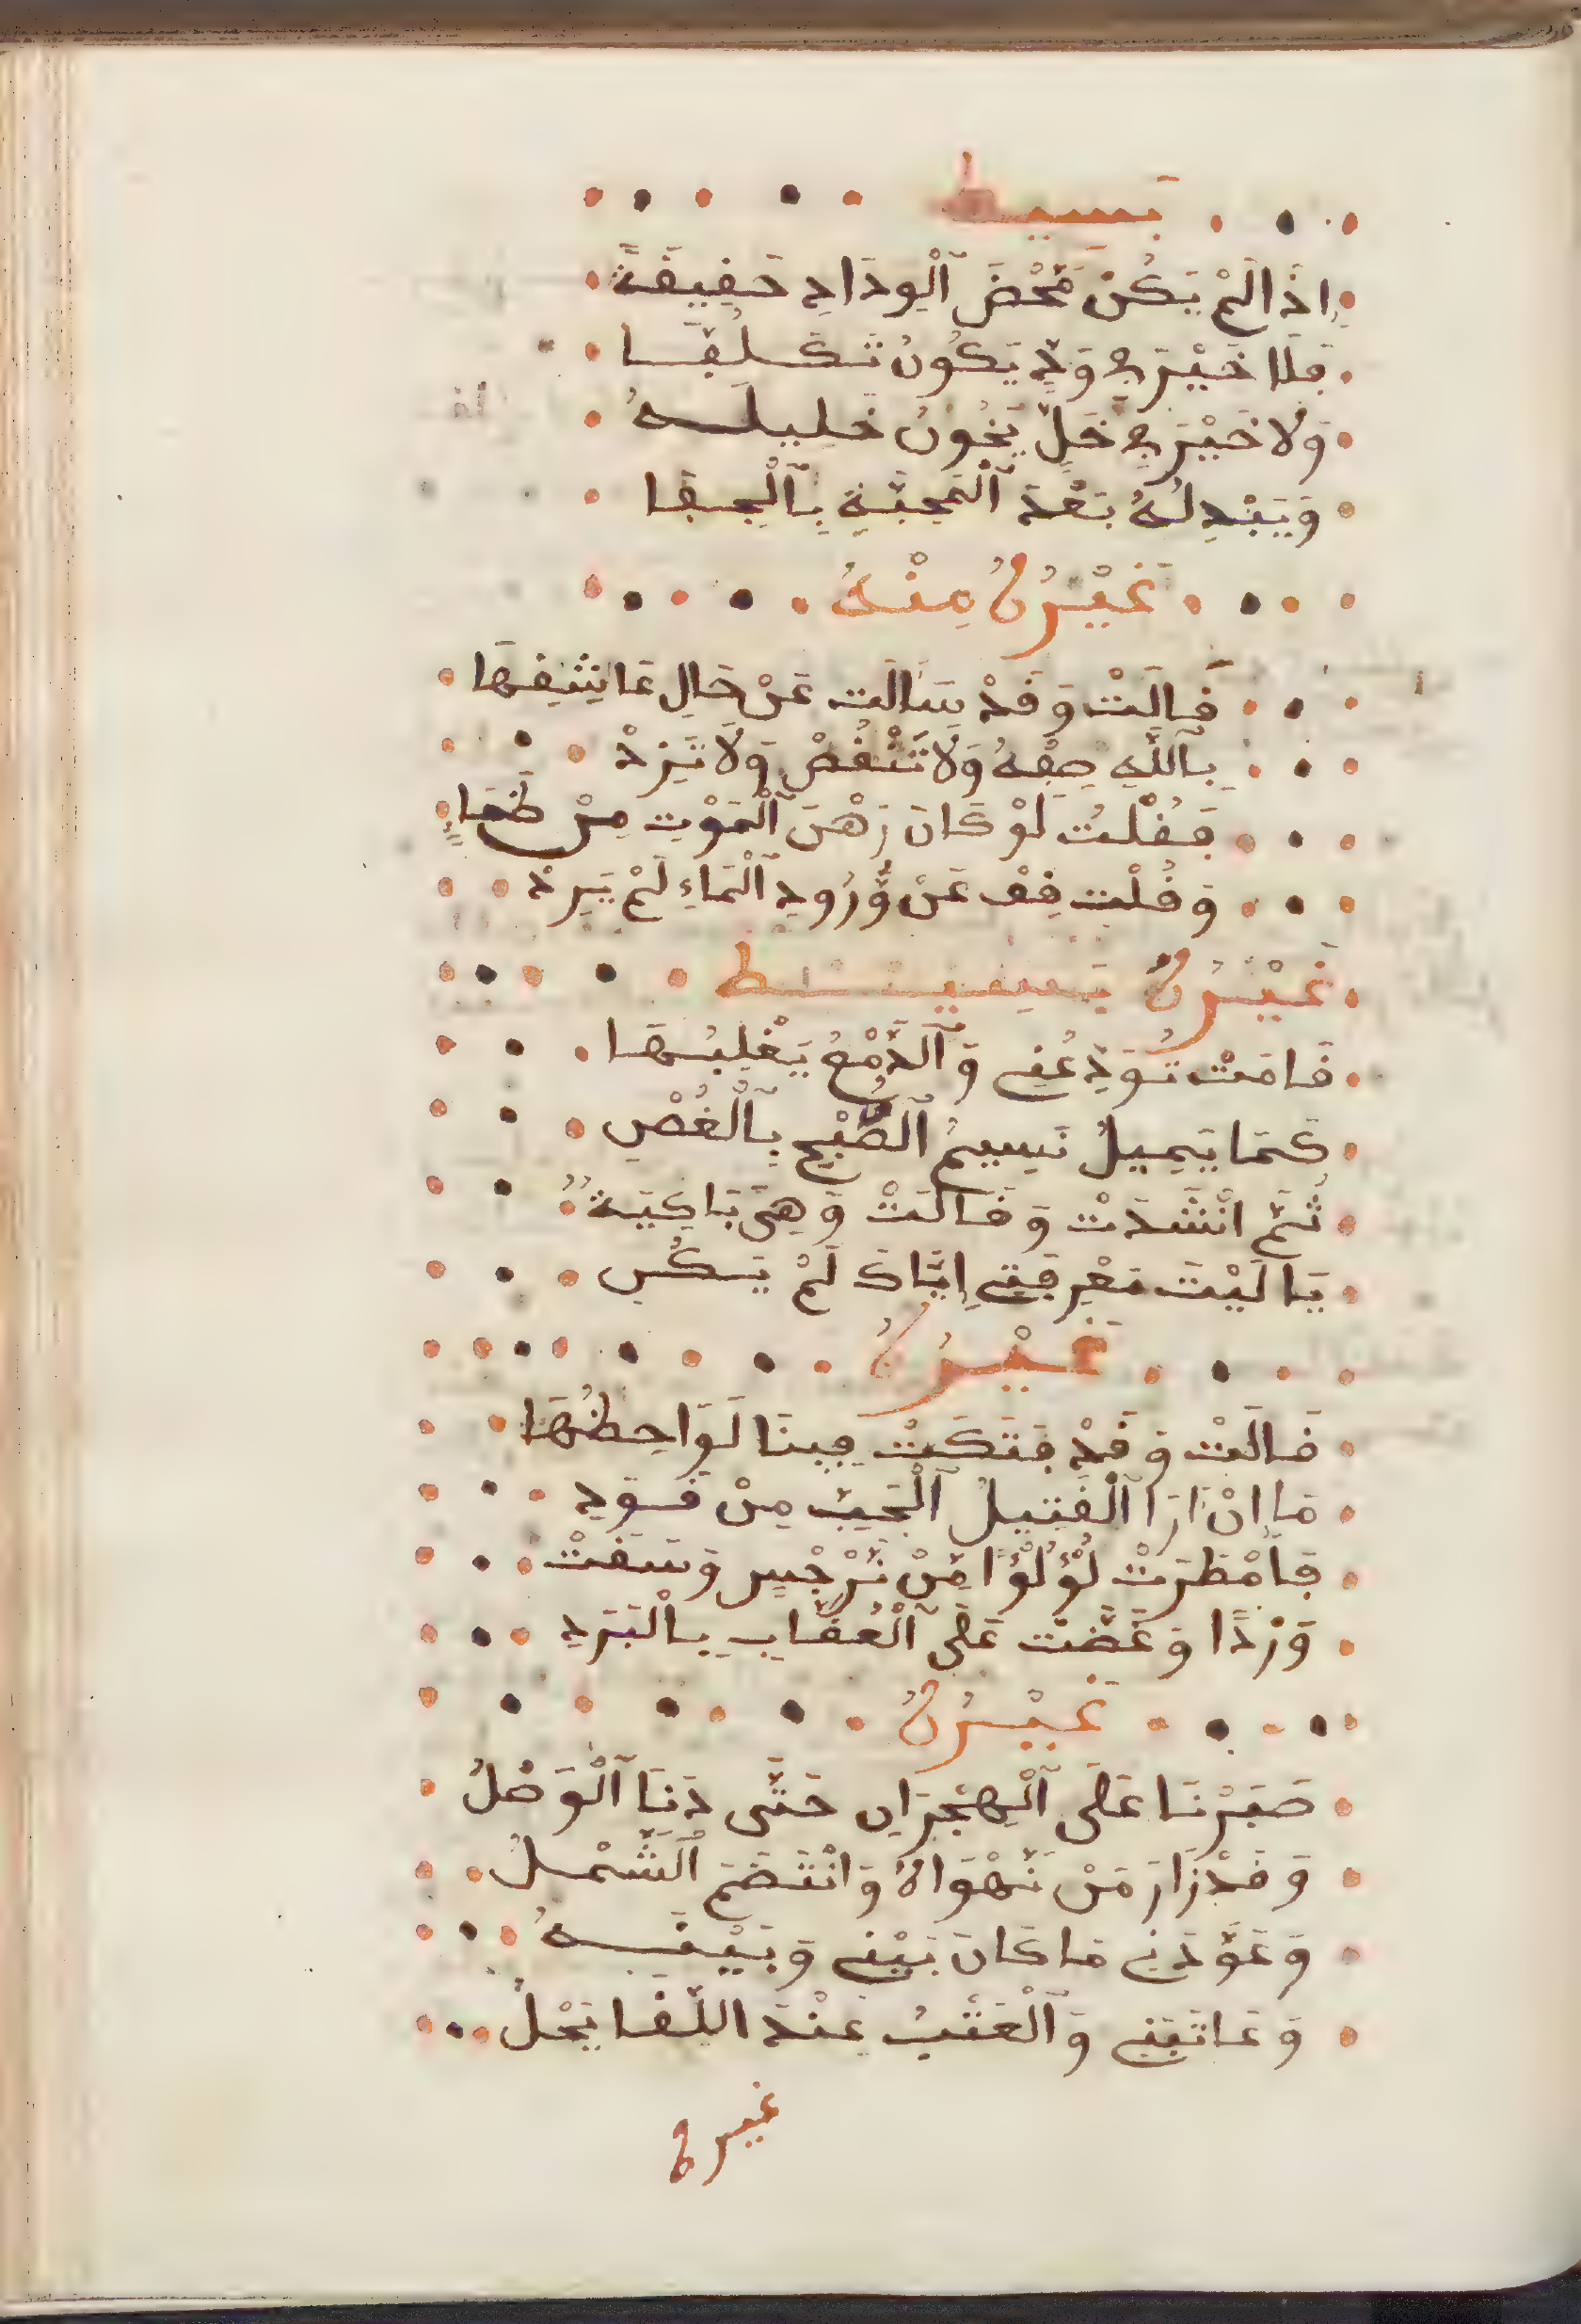 بَسيط
إِذَا لَمْ يَكُنْ مَحْضَ ٱلْوِدَادِ حَقِيقَةً
فَلَا خَيْرَ فِي وَدٍّ يَكُونُ تَكَلُّفَا
وَلَا خَيْرَ فِي خِلٍّ يَخُونُ خَلِيلَهُ
وَيَبْدِلُهُ بَعْدَ ٱلْمَحَبَّةِ بِٱلْجَفَا
غَيْرُهُ مِنْهُ
قَالَتْ وَقَدْ سَالَت عَنْ حَالِ عَاشِقِهَا
بِٱللَّهِ صِفْهُ وَلَا تَنْقُصْ وَلَا تَزِدْ
فَقُلْتُ لَوْ كَانَ رَهْنَ ٱلْمَوْتِ مِنْ ظَمَاءٍ
وَقُلْت قِف عَنْ وُّرُودِ ٱلْمَاءِ لَمْ يَرِدْ
غَيْرُهُ بَسِيط
قَامَتْ تُوَدِّعُنِي وَٱلدَّمْعُ يَغْلِبُهَا
كَمَا يَمِيلُ نَسِيمُ ٱلصُّبْحِ بِٱلْغُصْنِ
ثُمَّ انْشَدَتْ وَقَالَتْ وَهِيَ بَاكِيَةٌ
يَا لَيْتَ مَعْرِفَتِي إِيَّاكَ لَمْ يَكُنِ
غَيْرُهُ
قَالَتْ وَقَدْ فَتَكَتْ فِينَا لَوَاحِظُهَا
مَا إِنْ أَرَا ٱلْقَتِيلُ ٱلْحَبّ مِنْ قَوَدِ
فَأَمْطَرَتْ لُؤْلُؤًا مِّنْ نَرْجِسٍ وَسَقَتْ
وَرْدًا وَعَضَّتْ عَلَى ٱلْعُنَّابِ بِالْبَرَدِ
غَيْرُهُ
صَبَرْنَا عَلَى ٱلْهِجْرَانِ حَتَّى دَنَا ٱلْوَصْلُ
وَقَدْ زَارَ مَنْ نَّهْوَاهُ وَانْتَضَمَ ٱلشَّمْلُ
وَعَوَّدَنِي مَا كَانَ بَيْنِي وَبَيْنَهُ
وَعَاتَبَنِي وَٱلْعَتْبُ عِنْدَ اللِّقَا يَحْلُ
غيره